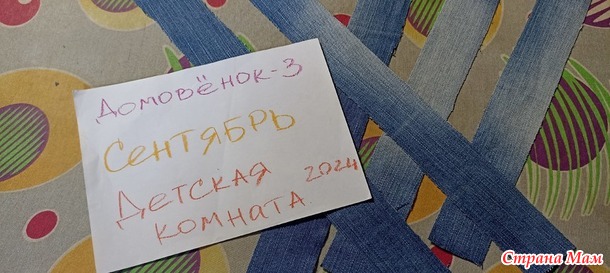 Домовёнок-3
Сентябрь
Детская 2024
комната
Страна Мам